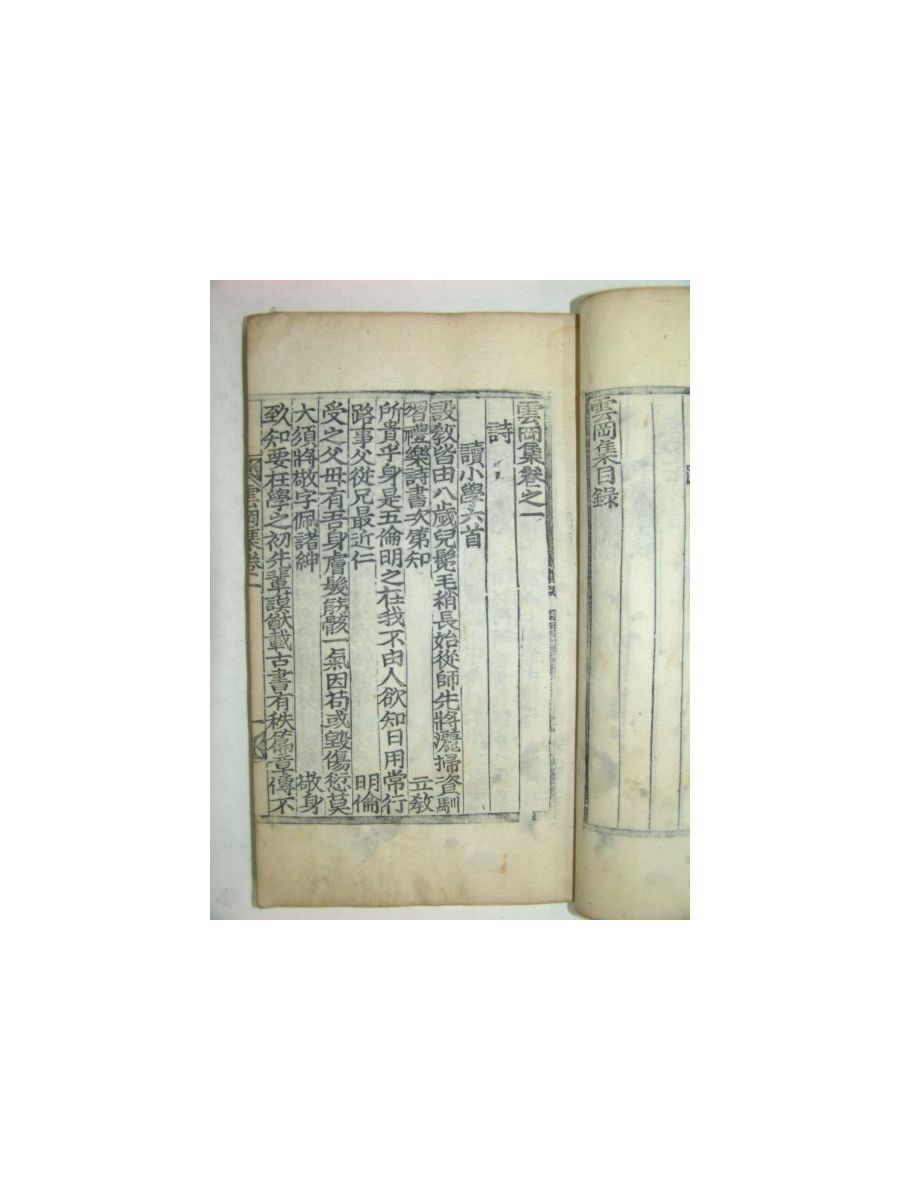 雲岡集目錄
雲岡集卷之一
詩
讀小學六首
設敎皆由八歲兒髧毛稍長始從師先將灑掃資馴
習禮樂詩書次第知 立敎
所貴乎身是五倫明之在我不由人欲知日用常行
路事父從兄最近仁 明倫
受之父母有吾身膚髮筋骸一氣因苟或毁傷愆莫
大須將敬字佩諸紳 敬身
致知要在學之初先輩謨猷載古書有秩篇章傳不
雲岡集卷一 一